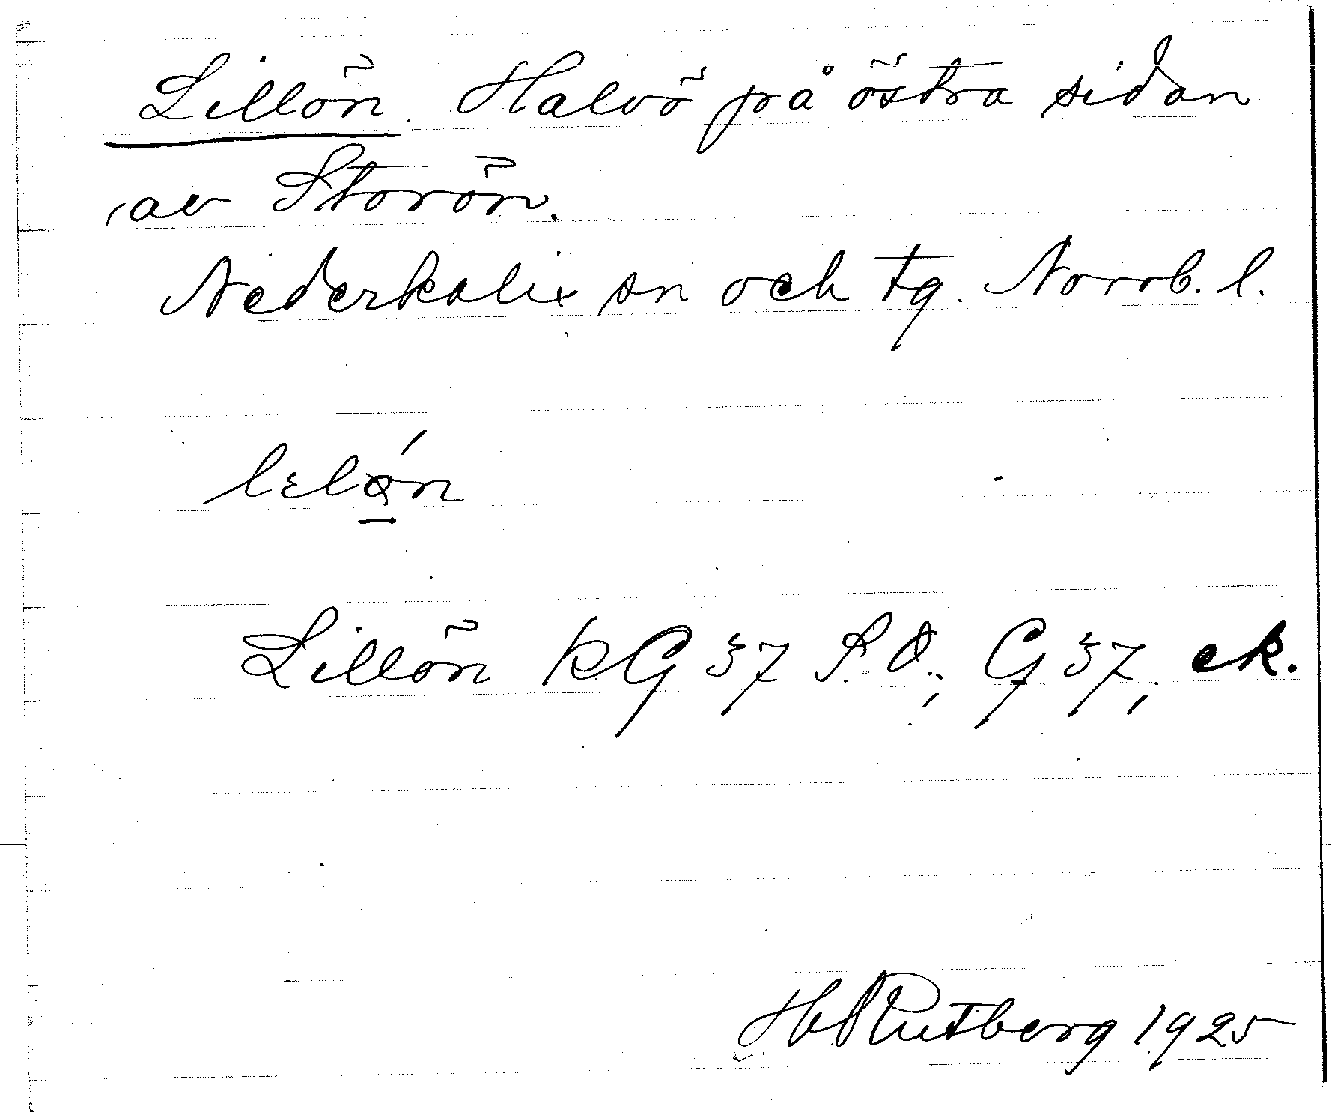 Lillön. Halvö på östra sidan
av Storön.
Nederkalix sn och tg. Norrb. l.
Lillön kG 37 S.O.; G 37, ek.
H Rutberg 1925